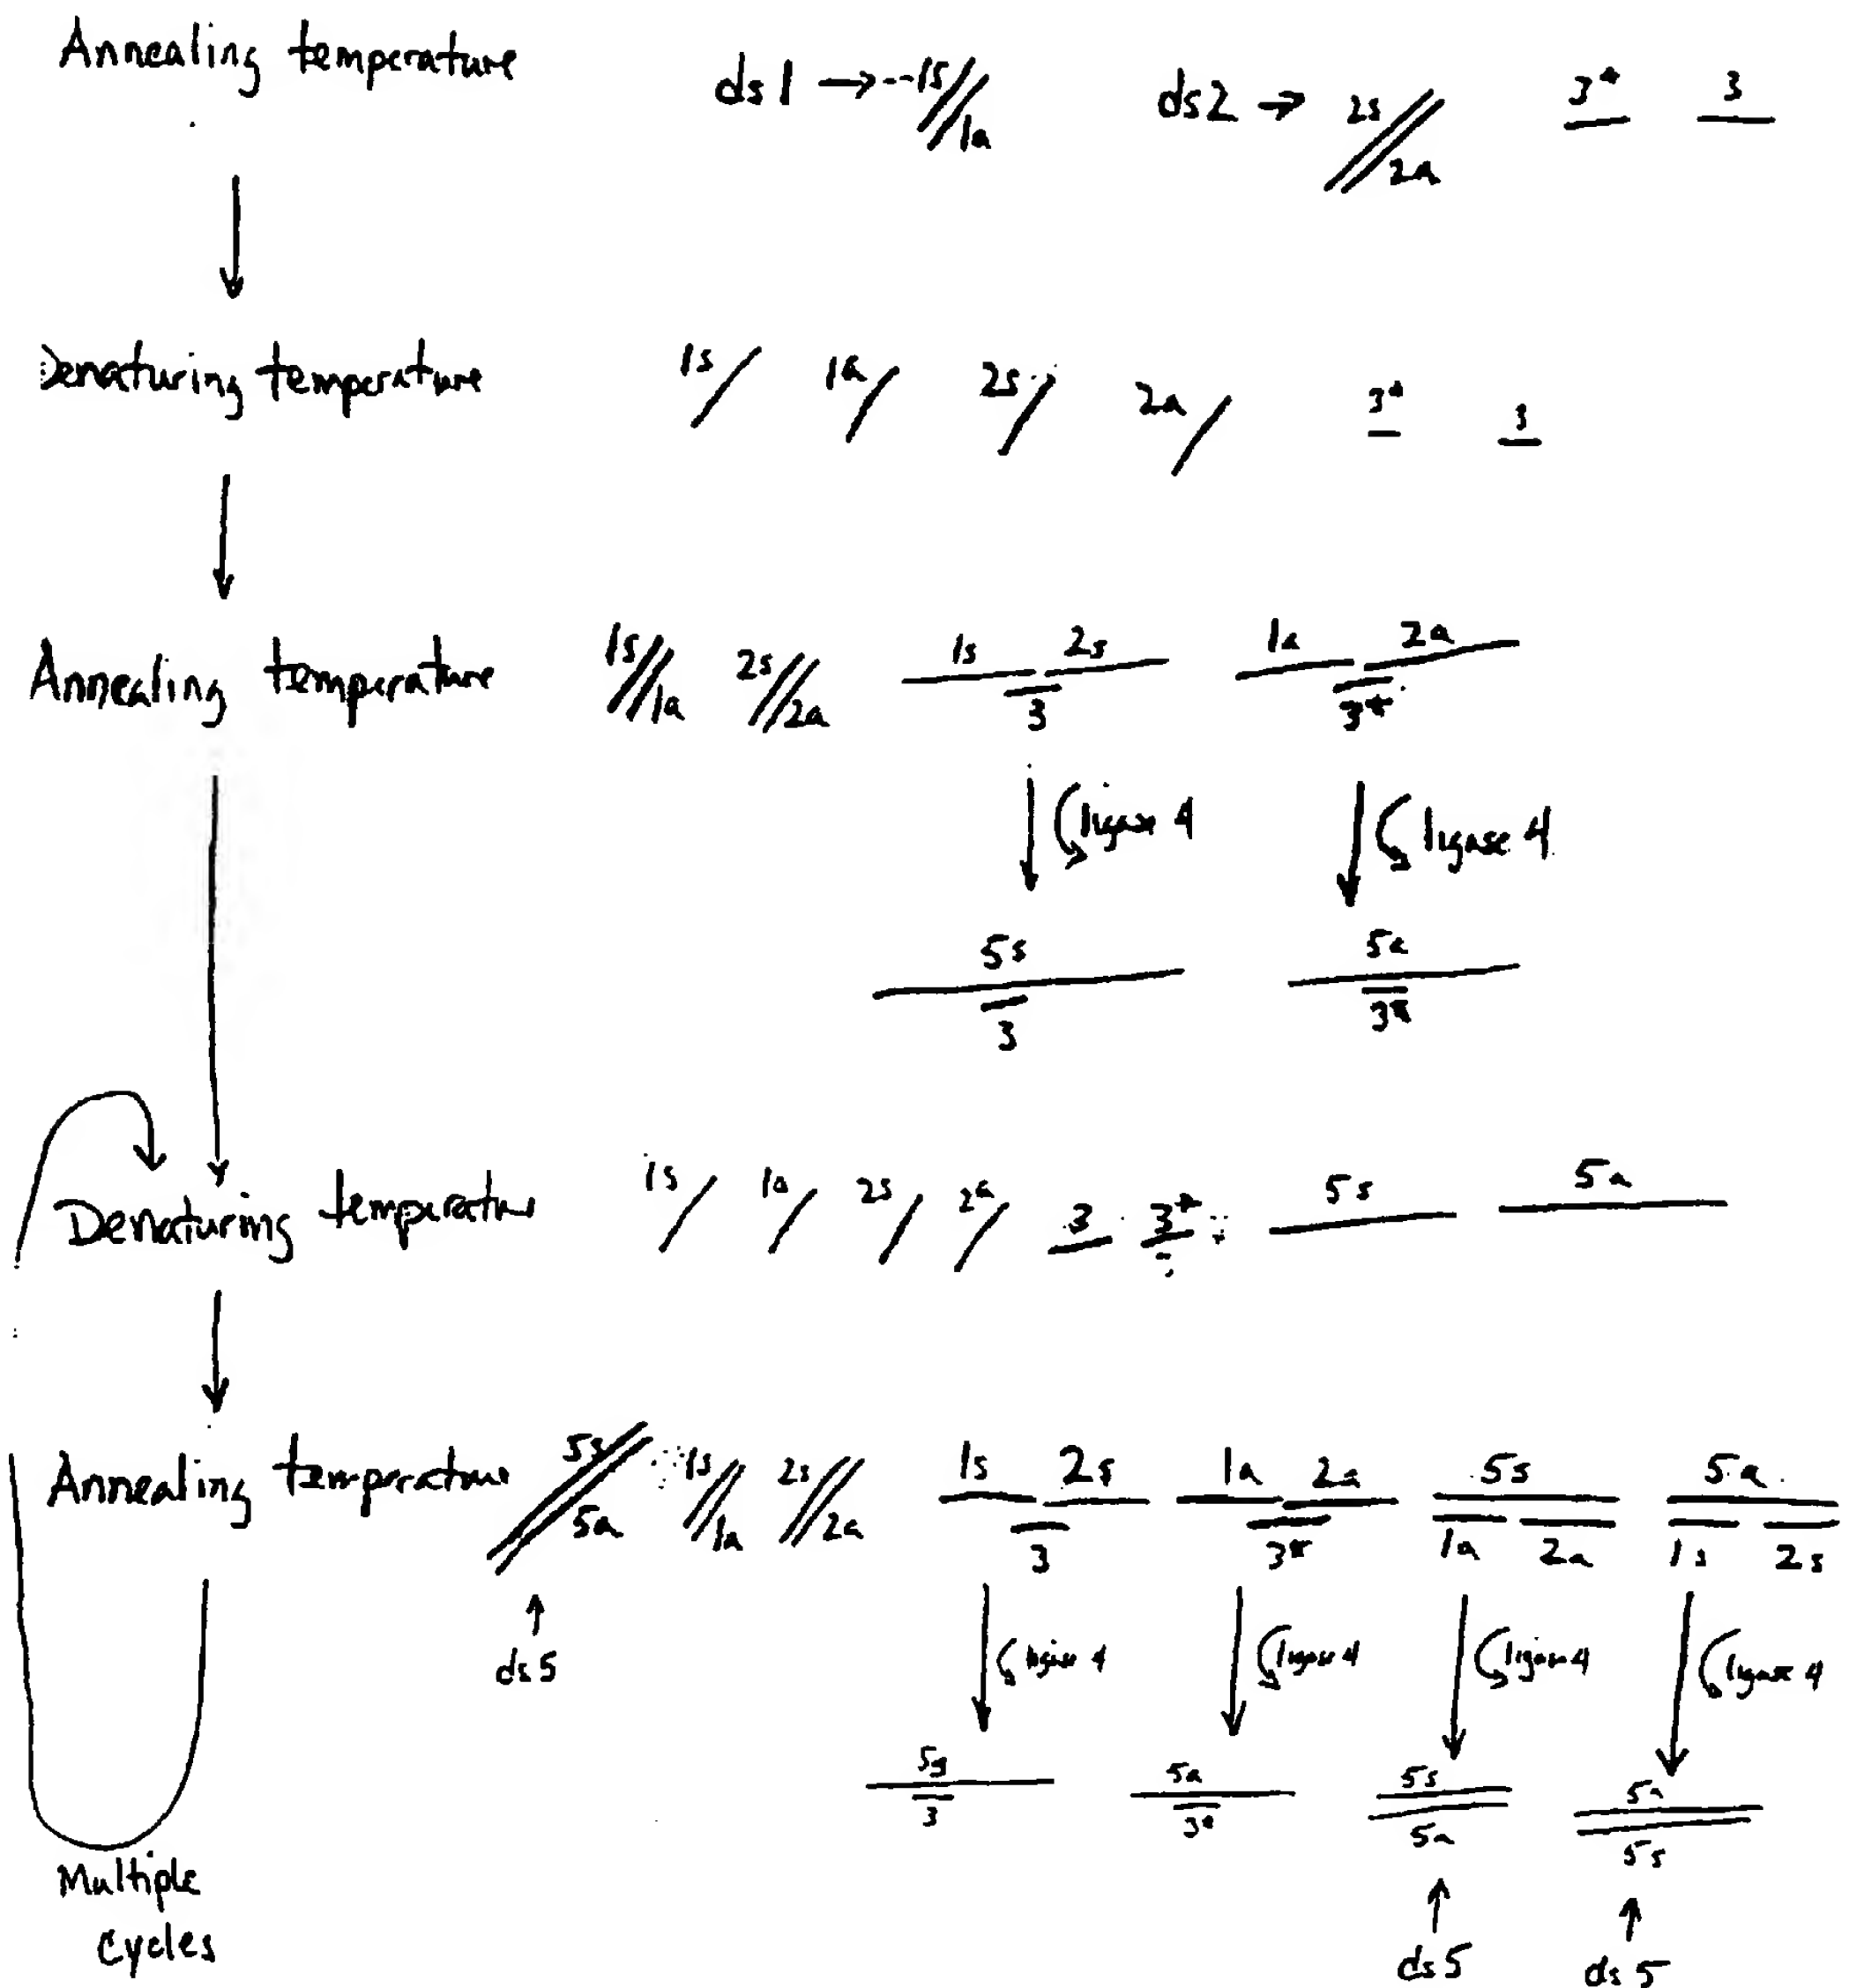 Annealing temperature ds1 → 1s 1a ds2 → 2s 2a 3* 3
Denaturing temperature 1s 1a 2s 2a 3* 3
Annealing temperature 1s 1a 2s 2a 1s 2s 3 1a 2a 3*
ligase 4 ligase 4
5s 5a
3 3*
Denaturing temperature 1s 1a 2s 2a 3 3* 5s 5a
Annealing temperature 5s 5a 1s 1a 2s 2a 1s 2s 3 1a 2a 3* 5s 1a 2a 5a 1s 2s
ds5 ligase 4 ligase 4 ligase 4 ligase 4
5s 5a 5s 5a
3 3* 5a 5s
Multiple
Cycles
ds5 ds5